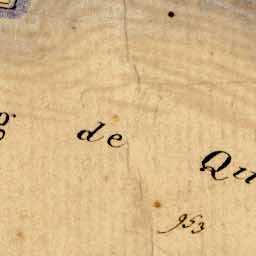 g de Qu
953